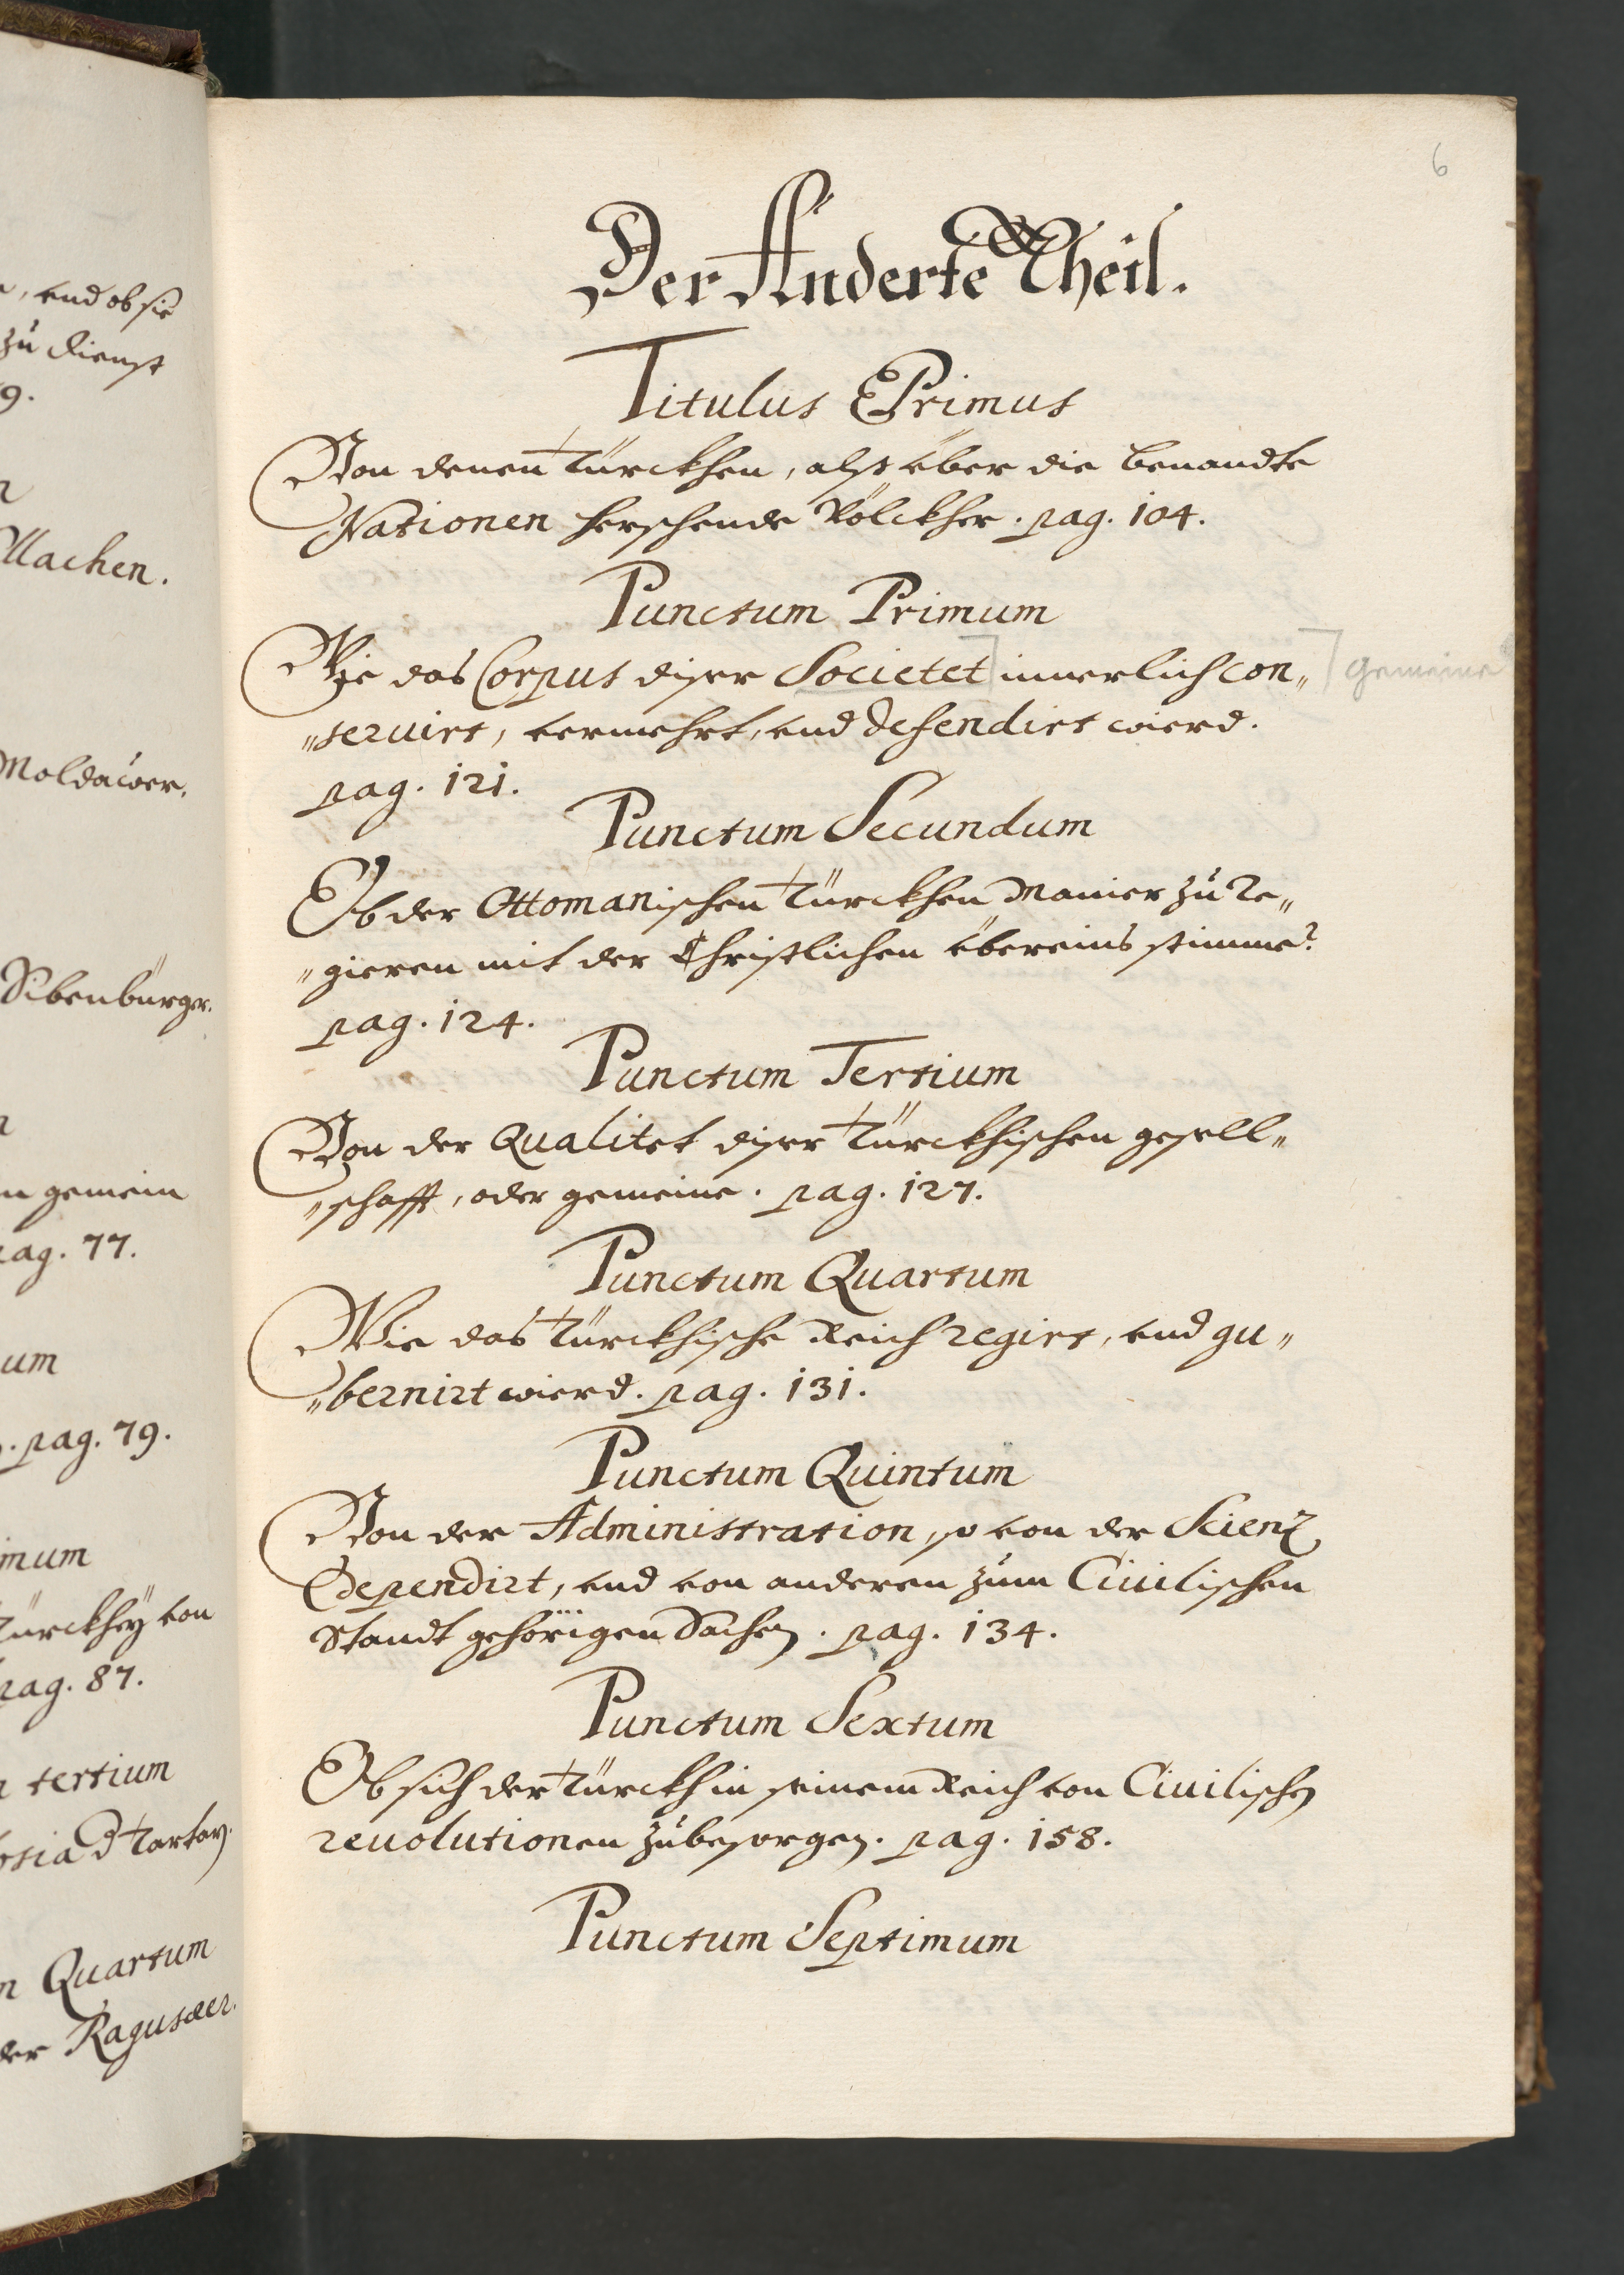 , vnd ob sie
zu dienst
9.
Wlachen.
Moldauer.
Sibenbürger.
gemein
pag. 77.
um
pag. 79.
imum
Türckhey von
pag. 87.
tertium
Tartar
Quartum
der Ragusaer.
6
Der Anderte Theil.
Titulus Primus
Von denen Türckhen, alß über die benandte
Nationen herschende Völckher. pag. 104.
Punctum Primum
Wie das Corpus diser Societet innerlich con„ gemeine
„servirt, vermehrt, vnd defendirt wierd.
pag. 121.
Punctum Secundum
Ob der Ottomanischen Türckhen Manier zu re„
„gieren mit der Christlichen übereins stimme?
pag. 124.
Punctum Tertium
Von der Qualitet diser Türckhischen gesell„
„schafft, oder gemeine. pag. 127.
Punctum Quartum
Wie das Türckhische Reich regirt, vnd gu„
„bernirt wierd. pag. 131.
Punctum Quintum
Von der Administration, so von der Scienz
dependirt, vnd von anderen zum Civilischen
Standt gehörigen Sachen. pag. 134.
Punctum Sextum
Ob sich der Türckh in seinem Reich von Civilischen
revolutionen zu besorgen. pag. 158.
Punctum Septimum